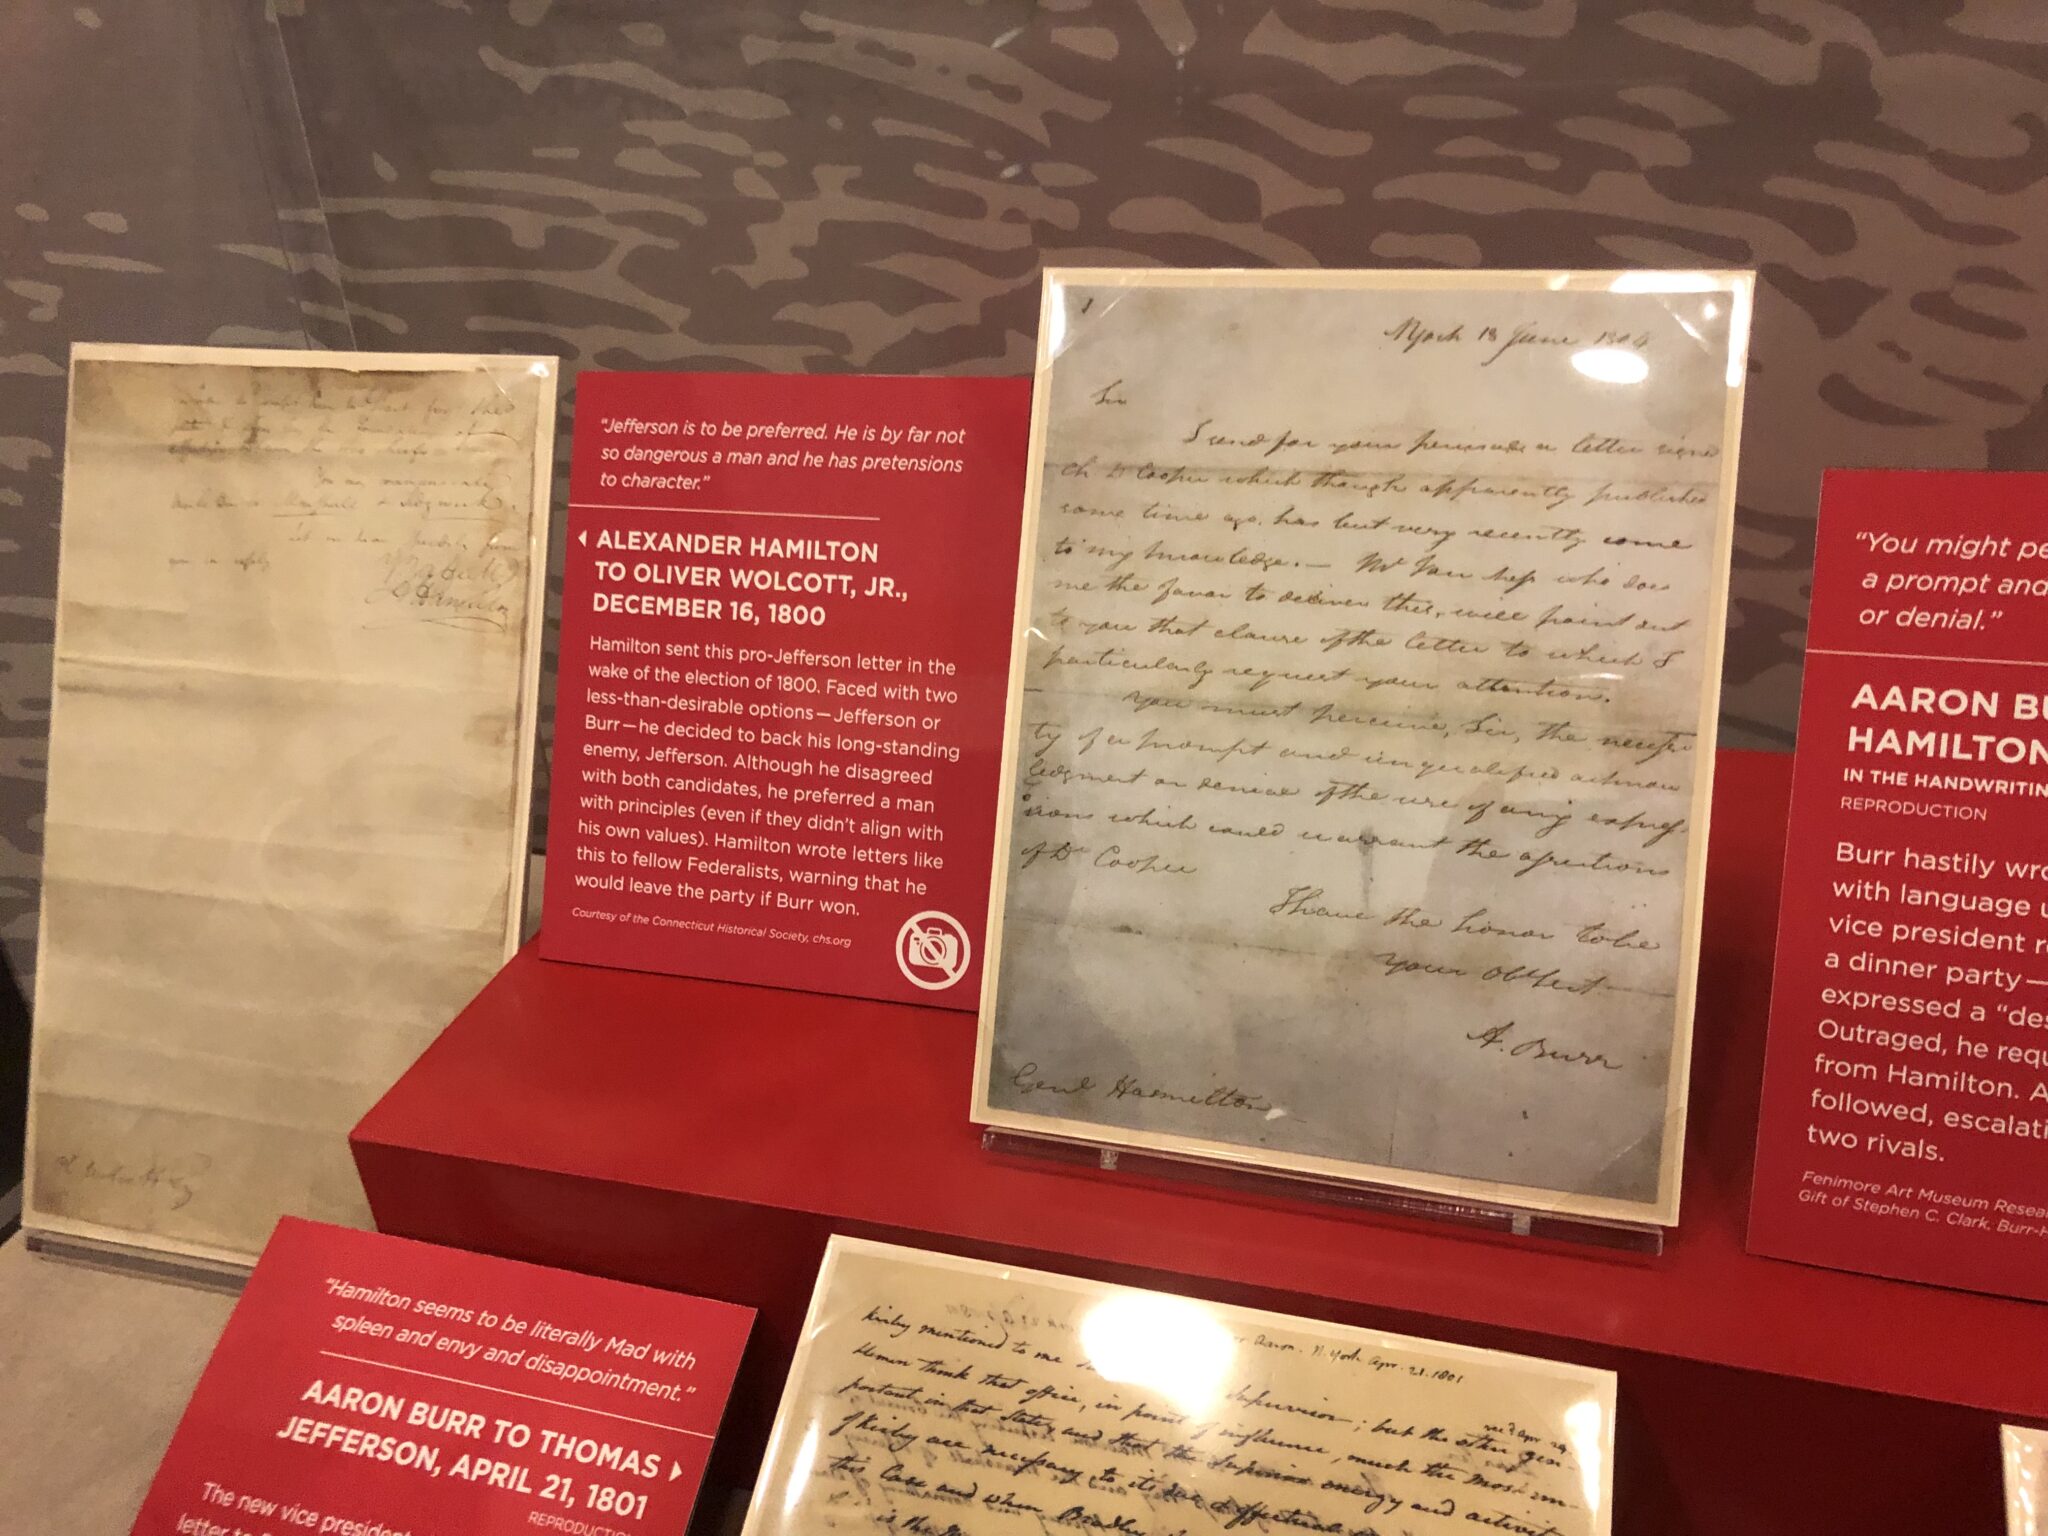 "Jefferson is to be preferred. He is by far not
so dangerous a man and he has pretensions
to character."
ALEXANDER HAMILTON
TO OLIVER WOLCOTT, JR.,
DECEMBER 16, 1800
Hamilton sent this pro-Jefferson letter in the
wake of the election of 1800. Faced with two
less-than-desirable options—Jefferson or
Burr—he decided to back his long-standing
enemy, Jefferson. Although he disagreed
with both candidates, he preferred a man
with principles (even if they didn't align with
his own values). Hamilton wrote letters like
this to fellow Federalists, warning that he
would leave the party if Burr won.
Courtesy of the Connecticut Historical Society, chs.org
1
NYork 18 June 1804
Sir
I send for your perusal a letter signed
Ch D Cooper which though apparently published
some time ago, has but very recently come
to my knowledge. — Mr Van Ness who does
me the favor to deliver this, will point out
to you that clause of the letter to which I
particularly request your attention.
You must perceive, Sir, the necessi
ty of a prompt and unqualified acknow
ledgment or denial of the use of any expres
sions which could warrant the assertions
of Dr Cooper
I have the honor to be
Your Obt Svt
A. Burr
Genl Hamilton
"You might pe
a prompt and
or denial."
AARON BU
HAMILTON
IN THE HANDWRITING
REPRODUCTION
Burr hastily wro
with language u
vice president r
a dinner party—
expressed a "des
Outraged, he requ
from Hamilton. A
followed, escalati
two rivals.
Fenimore Art Museum Resear
Gift of Stephen C. Clark, Burr-H
"Hamilton seems to be literally Mad with
spleen and envy and disappointment."
AARON BURR TO THOMAS
JEFFERSON, APRIL 21, 1801
REPRODUCTIO
The new vice president
letter to
Aaron. N. York Apr. 21. 1801
recd Apr 29.
Kirby mentioned to me Supervisor; but the other gen-
tlemen think that office, in point of influence, much the most im-
portant in that State, and that the superior energy and activity
of Kirby are necessary to its due & effectual
this Case, and when Bradley
is the